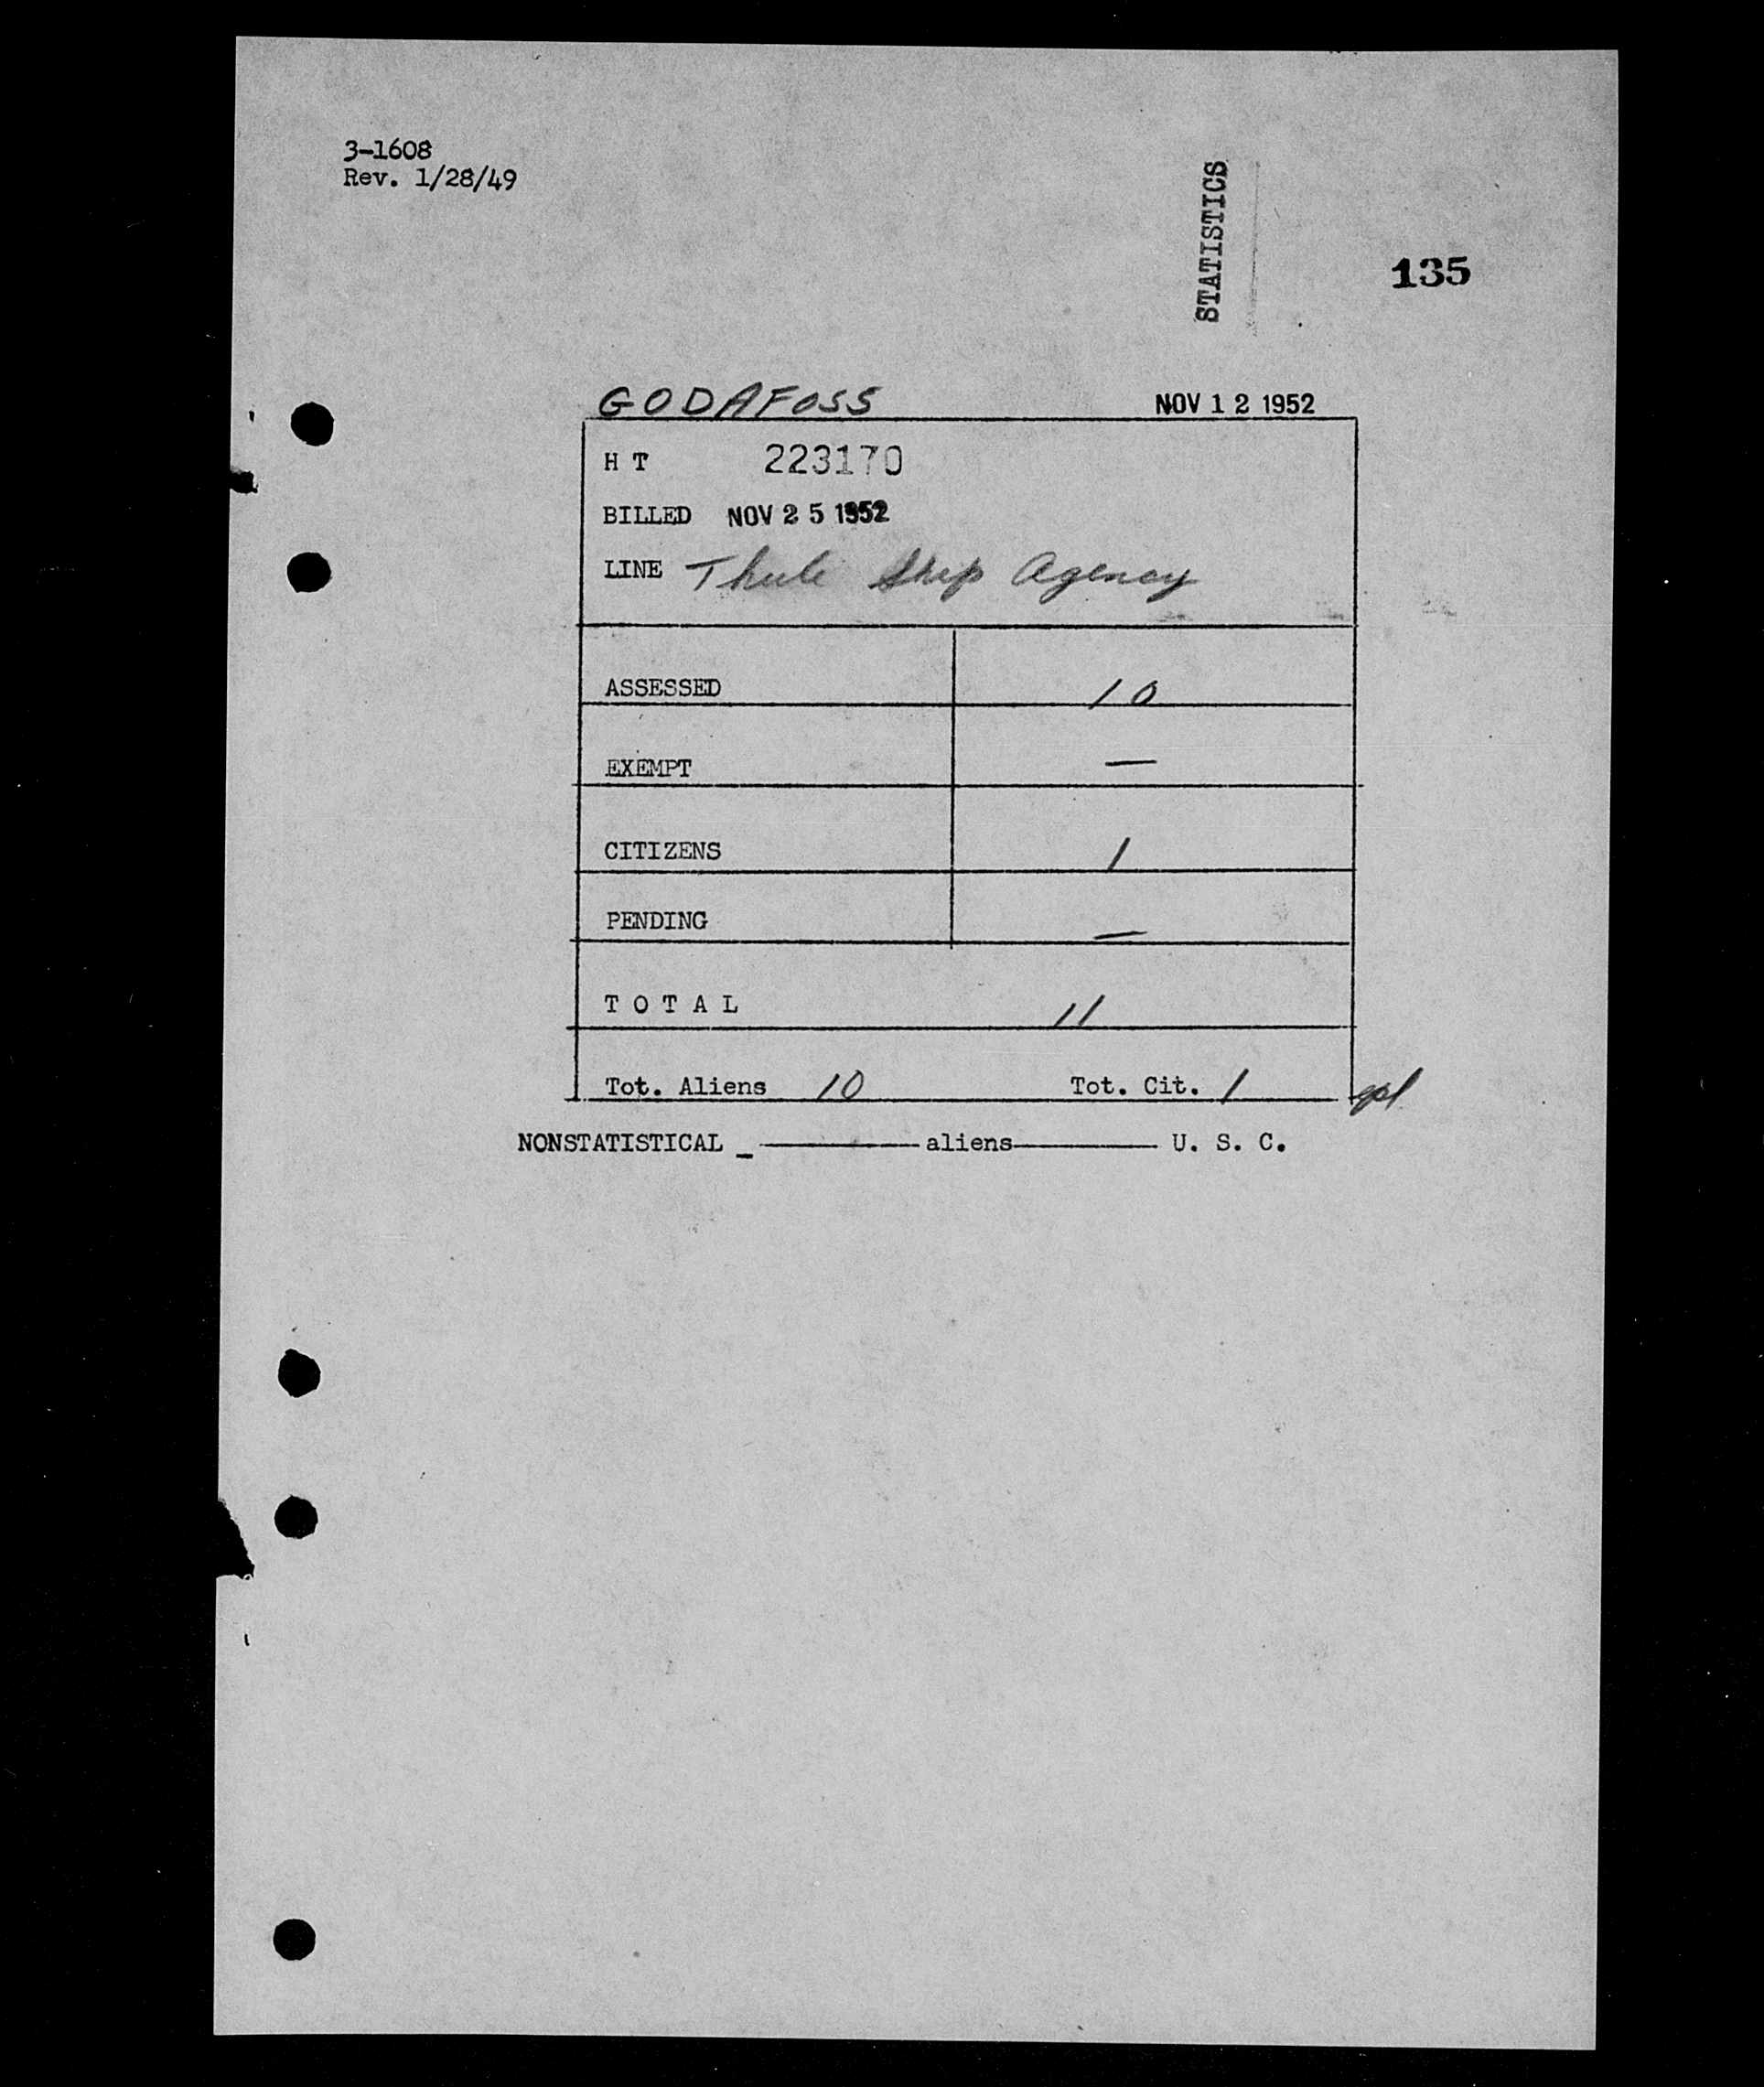 3-1608
Rev. 1/28/49
STATISTICS
135
GODAFOSS NOV 12 1952
H T 223170
BILLED NOV 25 1952
LINE Thule Ship Agency
ASSESSED 10
EXEMPT —
CITIZENS 1
PENDING —
T O T A L 11
Tot. Aliens 10 Tot. Cit. 1
NONSTATISTICAL _ ———— aliens ———— U. S. C.